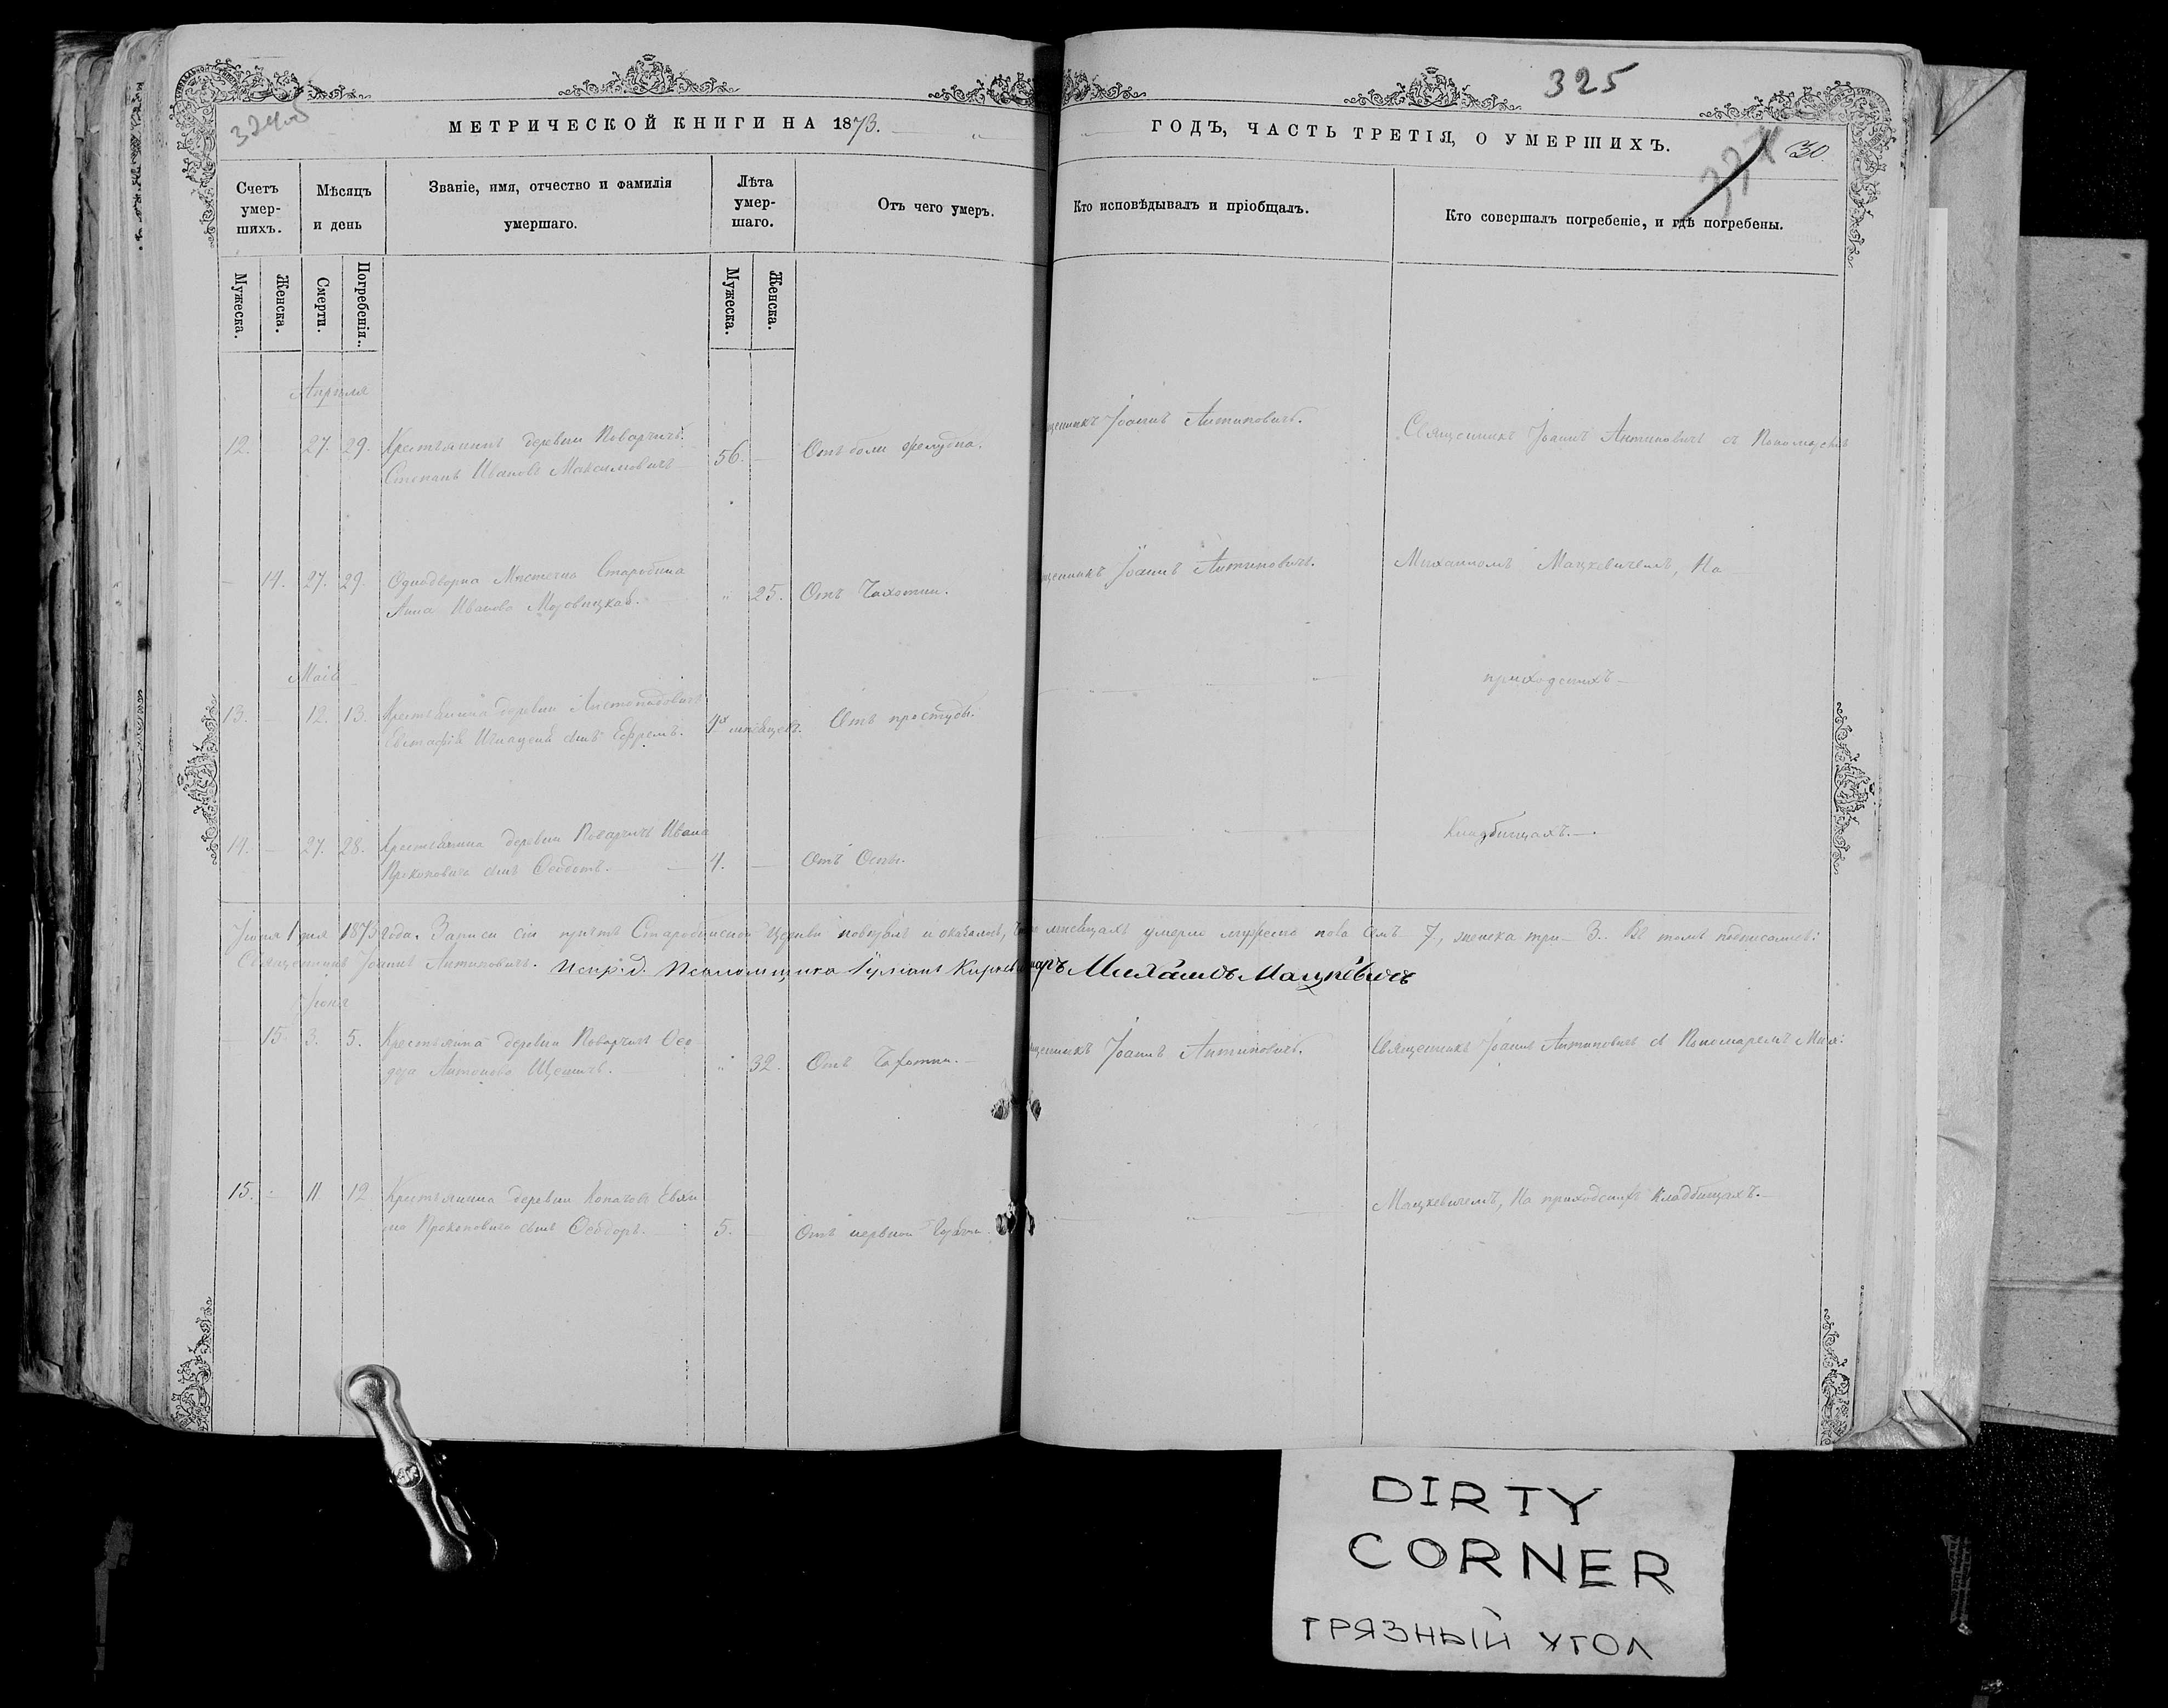 324об
325
МЕТРИЧЕСКОЙ КНИГИ НА 1873.
ГОДЪ, ЧАСТЬ ТРЕТІЯ, О УМЕРШИХЪ.
30.
Счетъ умер-шихъ.
Мѣсяцъ и день
Званіе, имя, отчество и фамилія умершаго.
Лѣта умер-шаго.
Отъ чего умеръ.
Кто исповѣдывалъ и пріобщалъ.
Кто совершалъ погребеніе, и гдѣ погребены.
Мужеска.
Женска.
Смерти.
Погребенія.
Мужеска.
Женска.
Апрѣля
12. 27. 29. Крестьянинъ деревни Поварчичъ
Степанъ Ивановъ Максимовичъ 56. Отъ боли желудка.
щенникъ Іоаннъ Антиповичъ.
Священникъ Іоаннъ Антиповичъ съ Пономаремъ
14. 27. 29. Однодворка Мѣстечка Старобина
Анна Иванова 25. Отъ Чахотки.
щенникъ Іоаннъ Антиповичъ.
Михаиломъ Мацкевичемъ, На
Маія
13. 12. 13. Крестьянина деревни Листопадовичъ
Евстафія сынъ Ефремъ. 4х мѣсяцевъ. Отъ простуды.
приходскихъ
14. 27. 28. Крестьянина деревни Поварчичъ Ивана
Прокоповича сынъ Ѳеодотъ. 4. Отъ Оспы.
Кладбищахъ.
Іюня 1 дня 1873 года. Записи сіи причтъ Старобинской Церкви повѣрялъ и оказалось, мѣсяцахъ умерло мужеска пола семь 7, женска три 3. Въ томъ подписались:
Священникъ Іоаннъ Антиповичъ. Испр. д. Псаломщика Іуліанъ Михаилъ Мацкевичъ
Іюня
15 3. 5. Крестьянка деревни Поварчичъ Ѳео
дора Антонова 32. Отъ Чахотки.
щенникъ Іоаннъ Антиповичъ.
Священникъ Іоаннъ Антиповичъ съ Пономаремъ Мих:
15. 11 12 Крестьянина деревни
Прокоповича сынъ Ѳеодоръ. 5. Отъ нервной
Мацкевичемъ, На приходскихъ Кладбищахъ.
DIRTY
CORNER
ГРЯЗНЫЙ УГОЛ